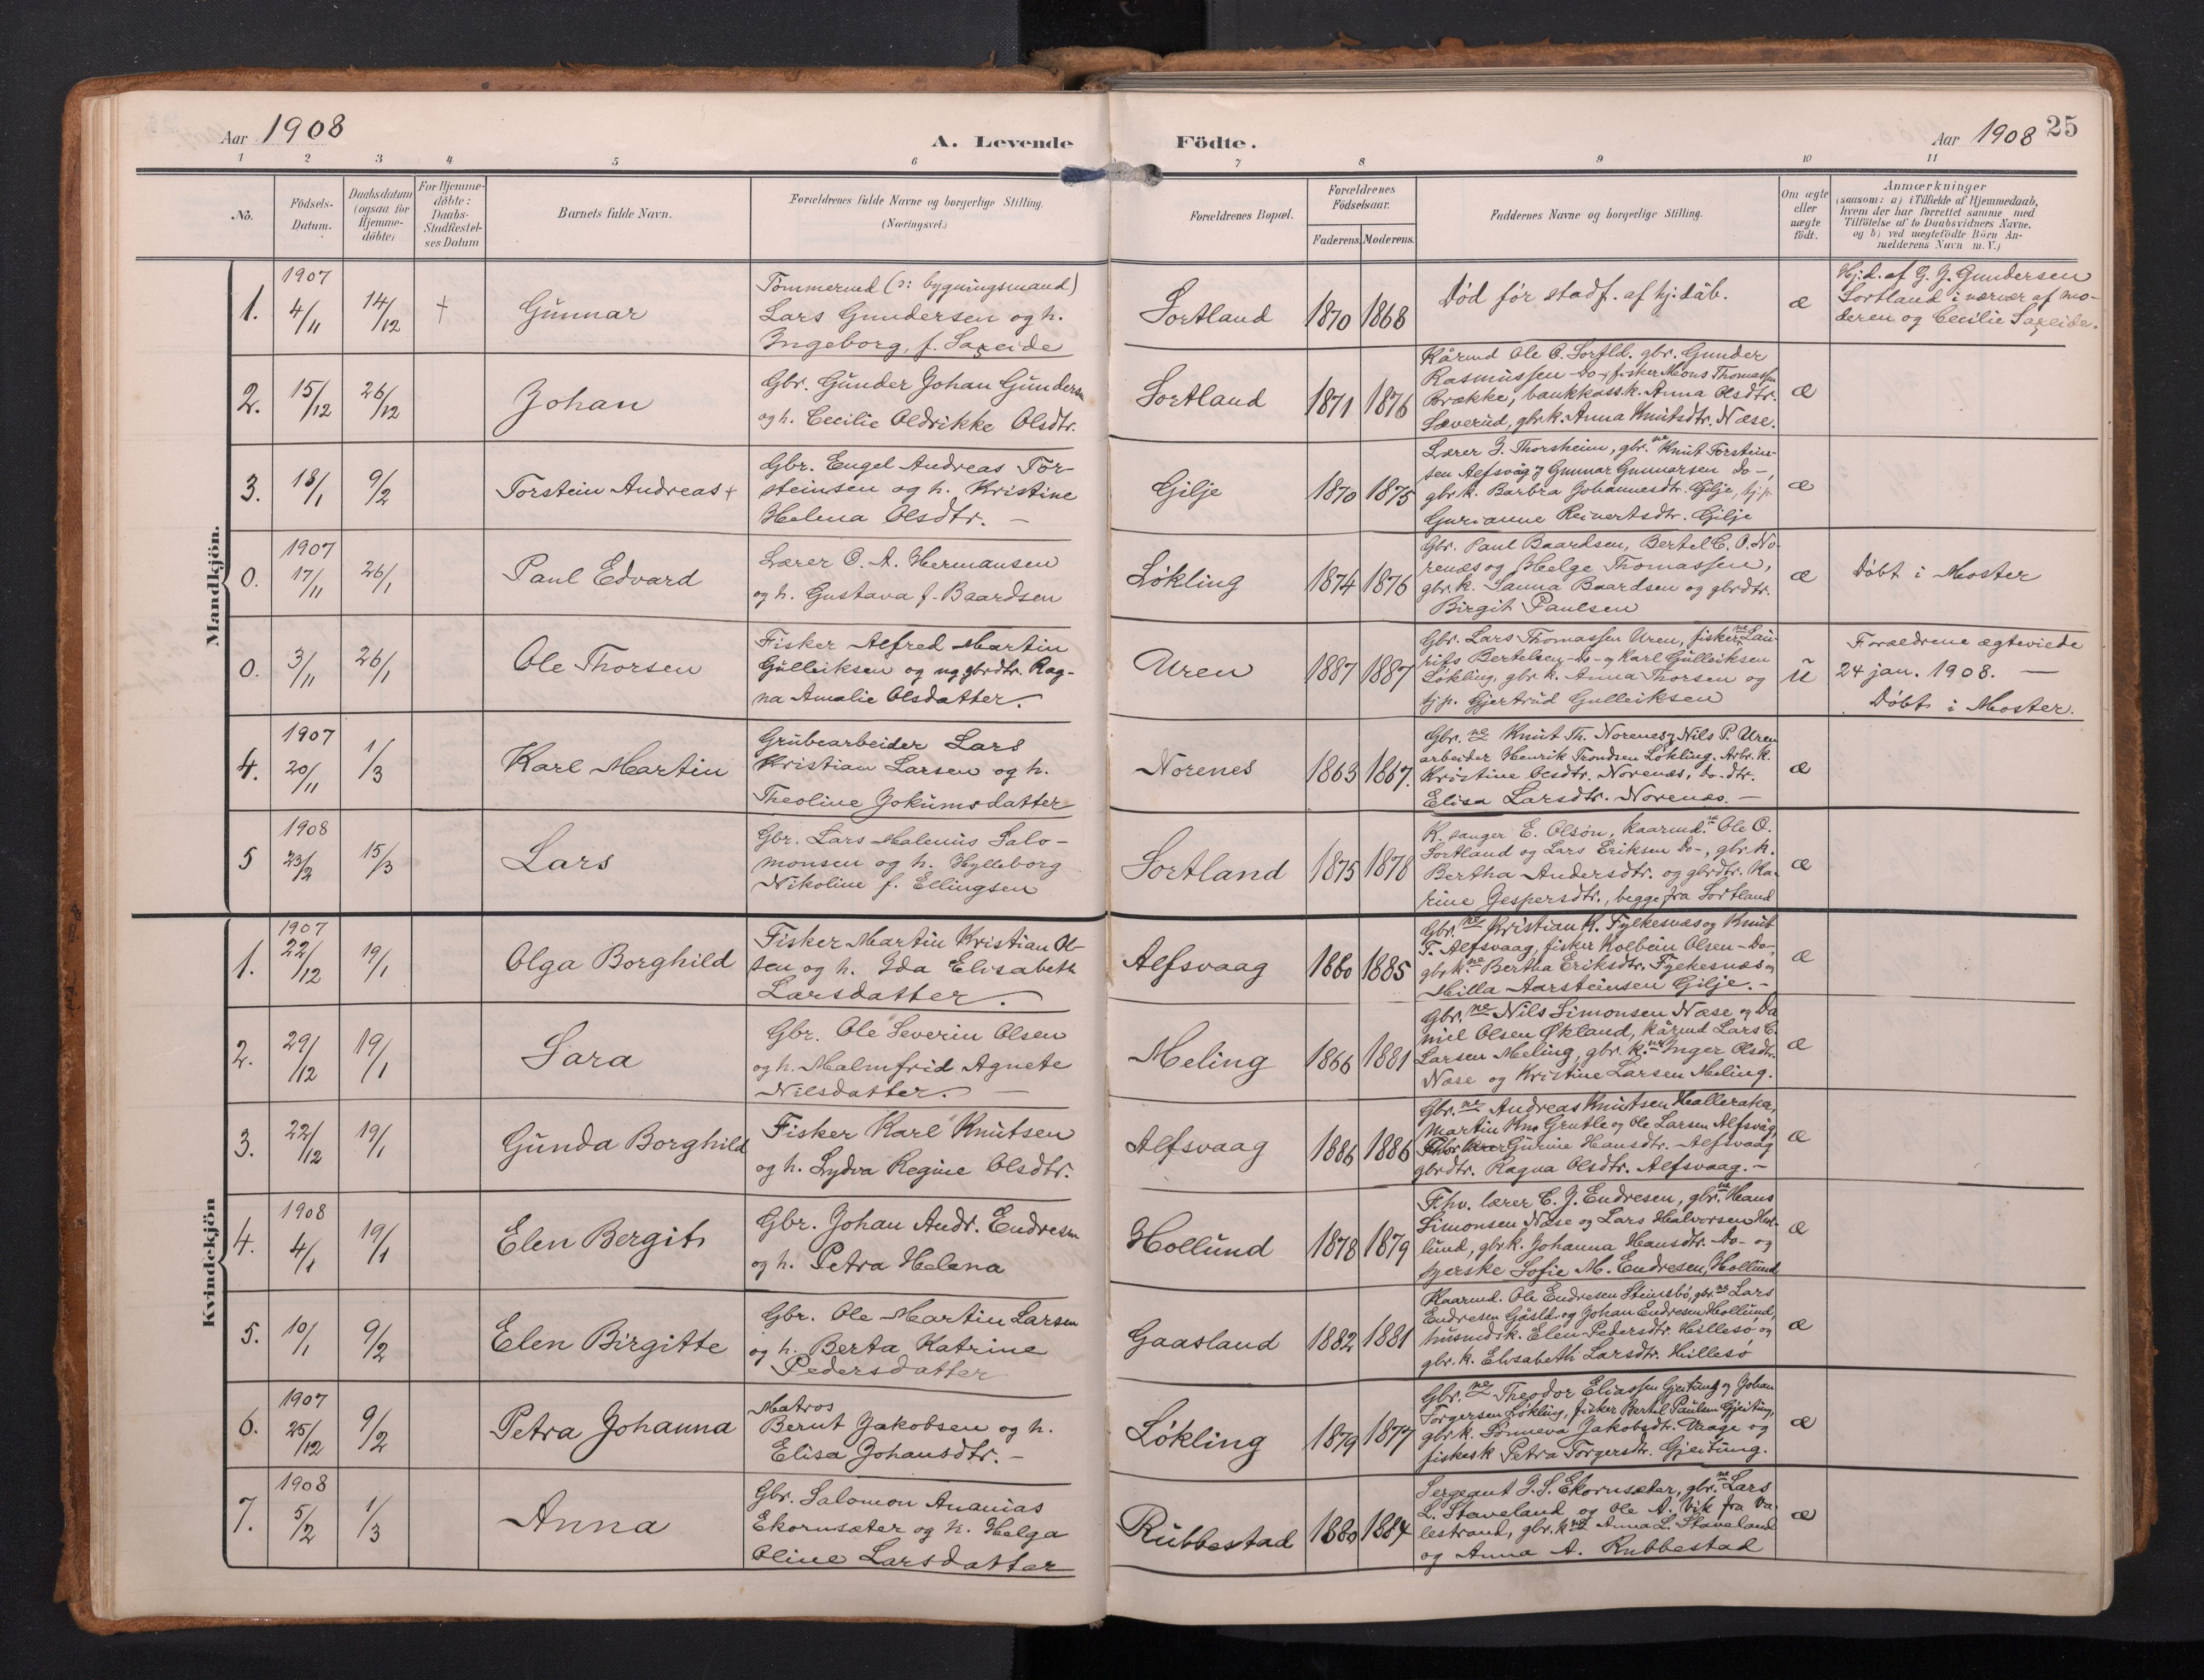 Aar 1908
A. Levende
Födte.
Aar 1908 25
1 2 3 4 5 6 7 8 9 10 11
No.
Födsels-
Datum.
Daabsdatum
(ogsaa for
Hjemme-
döbte)
For Hjemme-
döbte:
Daabs-
Stadfæstel-
ses Datum
Barnets fulde Navn.
Forældrenes fulde Navne og borgerlige Stilling.
(Næringsvei.)
Forældrenes Bopæl.
Forældrenes
Födselsaar.
Faderens. Moderens.
Faddernes Navne og borgerlige Stilling.
Om ægte
eller
uægte
födt.
Anmærkninger
(saasom: a) i Tilfælde af Hjemmedaab,
hvem der har forrettet samme med
Tilföielse af to Daabsvidners Navne.
og b) ved uægtefödte Börn An-
melderens Navn m. V.)
Mandkjön.
1. 1907 4/11 14/12 †
Gunnar
Tömmermd (ɔ: bygningsmand)
Lars Gundersen og h.
Ingeborg, f. Saxeide
Sortland 1870 1868
Död för stadf. af hj.dåb.
æ
Hj.d. af G. J. Gundersen
Sortland i nærvær af mo-
deren og Cecilie Saxeide.
2. 15/12 26/12
Johan
Gbr. Gunder Johan Gundersen
og h. Cecilie Oldrikke Olsdtr.
Sortland 1871 1876
Kårmd Ole O. Sortld. gbr. Gunder
Rasmussen -Do-, fisker Mons Thomassen
Brække, bankkass.k. Anna Olsdtr.
Sæverud, gbr.k. Anna Knutsdtr. Næse.
æ
3. 18/1 9/2
Torstein Andreas +
Gbr. Engel Andreas Tor-
steinsen og h. Kristine
Helena Olsdtr. -
Gilje 1870 1875
Lærer J. Thorsheim, gbr.ne Knut Torstein-
sen Alfsvåg og Gunnar Gunnarsen Do-,
gbr.k. Barbra Johannesdtr. Gilje, tj.p.
Gurianne Reinertsdtr. Gilje
æ
0. 1907 17/11 26/1
Paul Edvard
Lærer O. A. Hermansen
og h. Gustava f. Baardsen
Løkling 1874 1876
Gbr. Paul Baardsen, Bertel C. O. No-
renæs og Helge Thomassen,
gbr.k. Sanna Baardsen og gbrdtr.
Birgit Paulsen
æ
Döbt i Moster
0. 3/11 26/1
Ole Thorsen
Fisker Alfred Martin
Gulleiksen og ug. gbrdtr. Rag-
na Amalie Olsdatter.
Uren 1887 1887
Gbr. Lars Thomassen Uren, fisker ne Lau-
rits Bertelsen -Do- og Karl Gulleiksen
Løkling, gbr.k. Anna Thorsen og
tj.p. Gjertrud Gulleiksen
u
Forældrene ægteviede
24 jan. 1908. —
Döbt i Moster.
4. 1907 20/11 1/3
Karl Martin
Grubearbeider Lars
Kristian Larsen og h.
Theoline Jokumsdatter
Norenes 1863 1867.
Gbr. ne Knut Th. Norenes og Nils P. Uren
arbeider Henrik Trondsen Løkling. Arbr. k.
Kristine Olsdtr. Norenæs, Do- dtr.
Elisa Larsdtr. Norenæs. -
æ
5 1908 23/2 15/3
Lars
Gbr. Lars Malenius Salo-
monsen og h. Hylleborg
Nikoline f. Ellingsen
Sortland 1875 1878
K. sanger E. Olsön, Kaarmd. ne Ole O.
Sortland og Lars Eriksen Do-, gbr.k.
Bertha Andersdtr. og gbrdtr. Ka-
rine Jespersdtr., begge fra Sortland
æ
Kvindekjön
1. 1907 22/12 19/1
Olga Borghild
Fisker Martin Kristian Ol-
sen og h. Ida Elisabeth
Larsdatter.
Alfsvaag 1880 1885
Gbr. ne Kristian K. Fylkesnæs og Knut
T. Alfsvaag, fisker Kolbein Olsen -Do-,
gbr.k. ne Bertha Eriksdtr. Fylkesnæs og
Milla Aarsteinsen Gilje. -
æ
2. 29/12 19/1
Sara
Gbr. Ole Severin Olsen
og h. Malmfrid Agnete
Nilsdatter. -
Meling 1866 1881
Gbr. ne Nils Simonsen Næse og Da-
niel Olsen Økland, kårmd Lars C.
Larsen Meling, gbr. k. ne Inger Olsdtr.
Næse og Kristine Larsen Meling.
æ
3. 22/12 19/1
Gunda Borghild
Fisker Karl Knutsen
og h. Lydva Regine Olsdtr.
Alfsvaag 1886 1886
Gbr. ne Andreas Knutsen Halleraker,
Martin Grutle og Ole Larsen Alfsvåg,
Gurine Hansdtr. Alfsvaag
gbrdtr. Ragna Olsdtr. Alfsvaag. -
æ
4. 1908 4/1 19/1
Elen Bergit
Gbr. Johan Andr. Endresen
og h. Petra Helena
Hollund 1878 1879
Fhv. lærer E. J. Endresen, gbr. ne Hans
Simonsen Næse og Lars Halvorsen Hol-
lund, gbr.k. Johanna Hansdtr. -Do- og
syerske Sofie M. Endresen, Hollund.
æ
5. 10/1 9/2
Elen Birgitte
Gbr. Ole Martin Larsen
og h. Berta Katrine
Pedersdatter
Gaasland 1882 1881
Kaarmd. Ole Endresen Steinsbö, gbr. ne Lars
Endresen Gåsld. og Johan Endresen Hollund,
husmdsk. Elen Pedersdtr. Hillesø og
gbr.k. Elisabeth Larsdtr. Hillesø
æ
6. 1907 25/12 9/2
Petra Johanna
Matros
Bernt Jakobsen og h.
Elisa Johansdtr. -
Løkling 1879 1877
Gbr. ne Theodor Eliassen Gjeitung og Johan
Torgersen Løkling, fisker Bertel Paulsen Gjeitung,
gbr.k. Sønneva Jakobsdtr. Vaage og
fiskesk Petra Torgersdtr. Gjeitung.
æ
7. 1908 5/2 1/3
Anna
Gbr. Salomon Ananias
Ekornsæter og h. Helga
Oline Larsdatter
Rubbestad 1880 1884
Sergeant J. S. Ekornsæter, gbr. ne Lars
L. Staveland og Ole A. Vik fra Va-
lestrand, gbr. k ne Anna L. Staveland
og Anna A. Rubbestad
æ